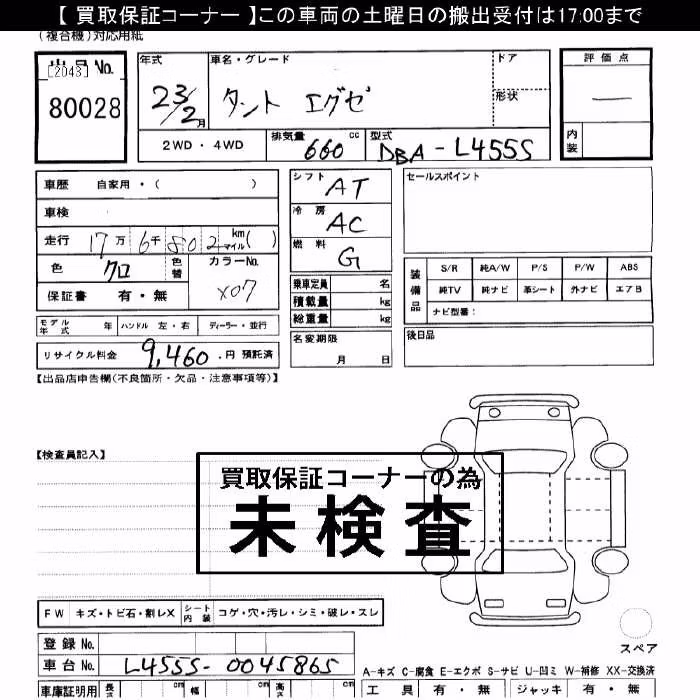 【 買取保証コーナー 】この車両の土曜日の搬出受付は17:00まで
(複合機)対応用紙
[2043] No.
80028
年式
23/2月
車名・グレード
タント エグゼ
ドア
形状
評価点
—
内装
2WD・4WD
排気量
660 cc
型式
DBA-L455S
車歴 自家用・( )
車検
走行 17万6千802 km マイル( )
色 クロ 色替
カラーNo. X07
保証書 有・無
モデル年式 年 ハンドル 左・右 ディーラー・並行
リサイクル料金 9,460.円 預託済
シフト AT
冷房 AC
燃料 G
乗車定員 名
積載量 kg
総重量 kg
名変期限
月 日
セールスポイント
装備品
S/R 純A/W P/S P/W ABS
純TV 純ナビ 革シート 外ナビ エアB
ナビ型番:
後日品
【出品店申告欄(不良箇所・欠品・注意事項等)】
【検査員記入】
買取保証コーナーの為
未検査
FW キズ・トビ石・割レX シート内装 コゲ・穴・汚レ・シミ・破レ・スレ
登録No.
車台No. L455S-0045865
車庫証明用 長さ cm 幅 cm 高さ cm
スペア
A-キズ C-腐食 E-エクボ S-サビ U-凹ミ W-補修 XX-交換済
工具 有・無 ジャッキ 有・無